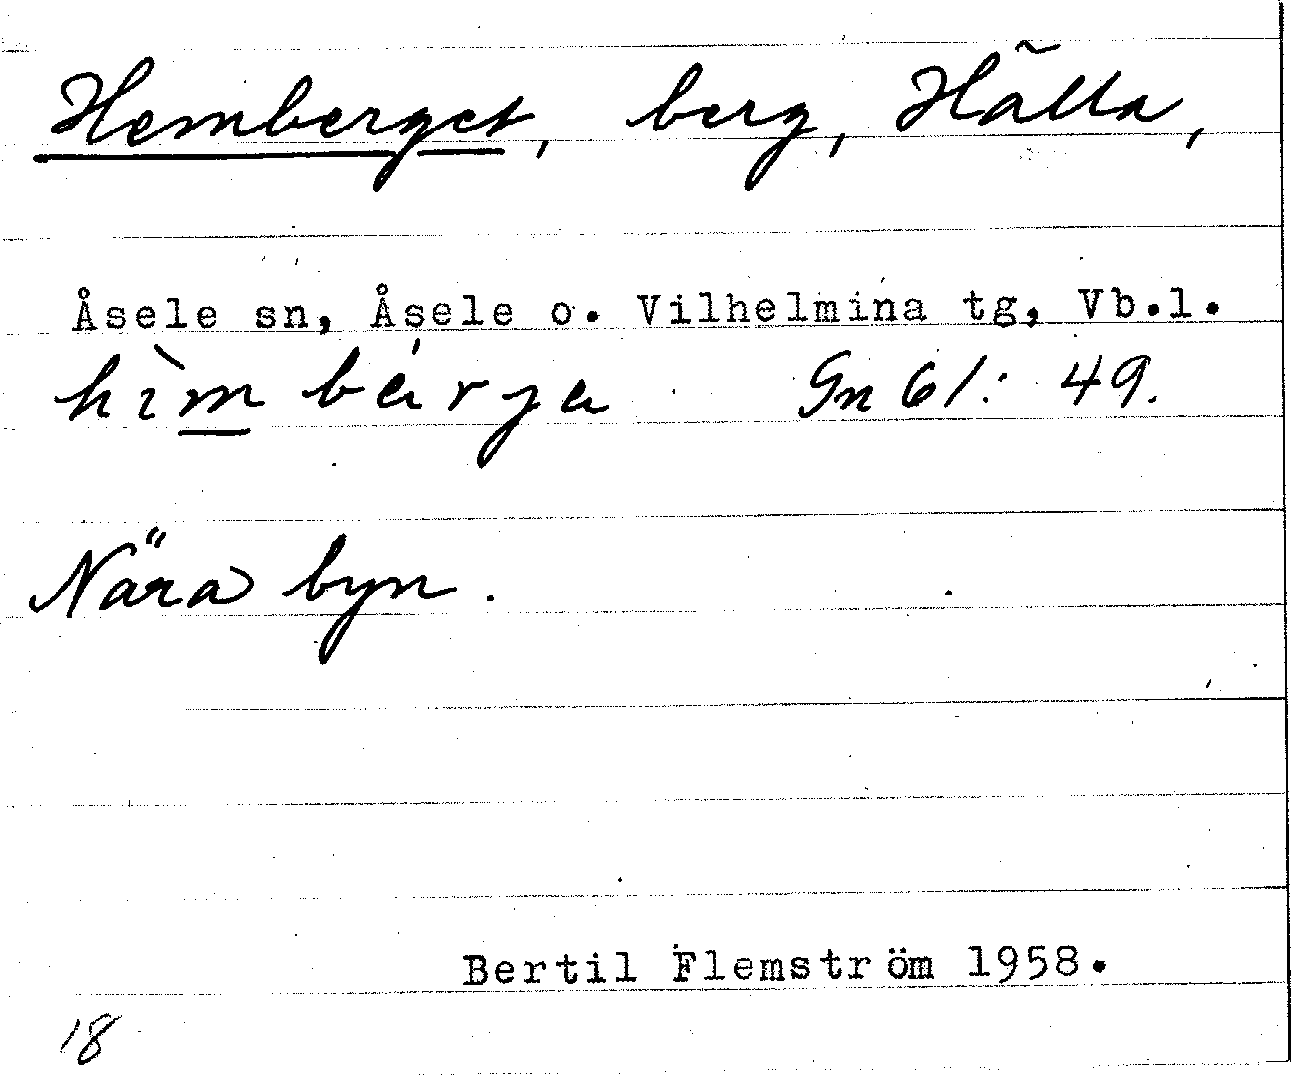 Hemberget, berg, Hälla,
Åsele sn, Åsele o. Vilhelmina tg, Vb.l.
hìm bárja Gn 61: 49.
Nära byn.
Bertil Flemström 1958.
18